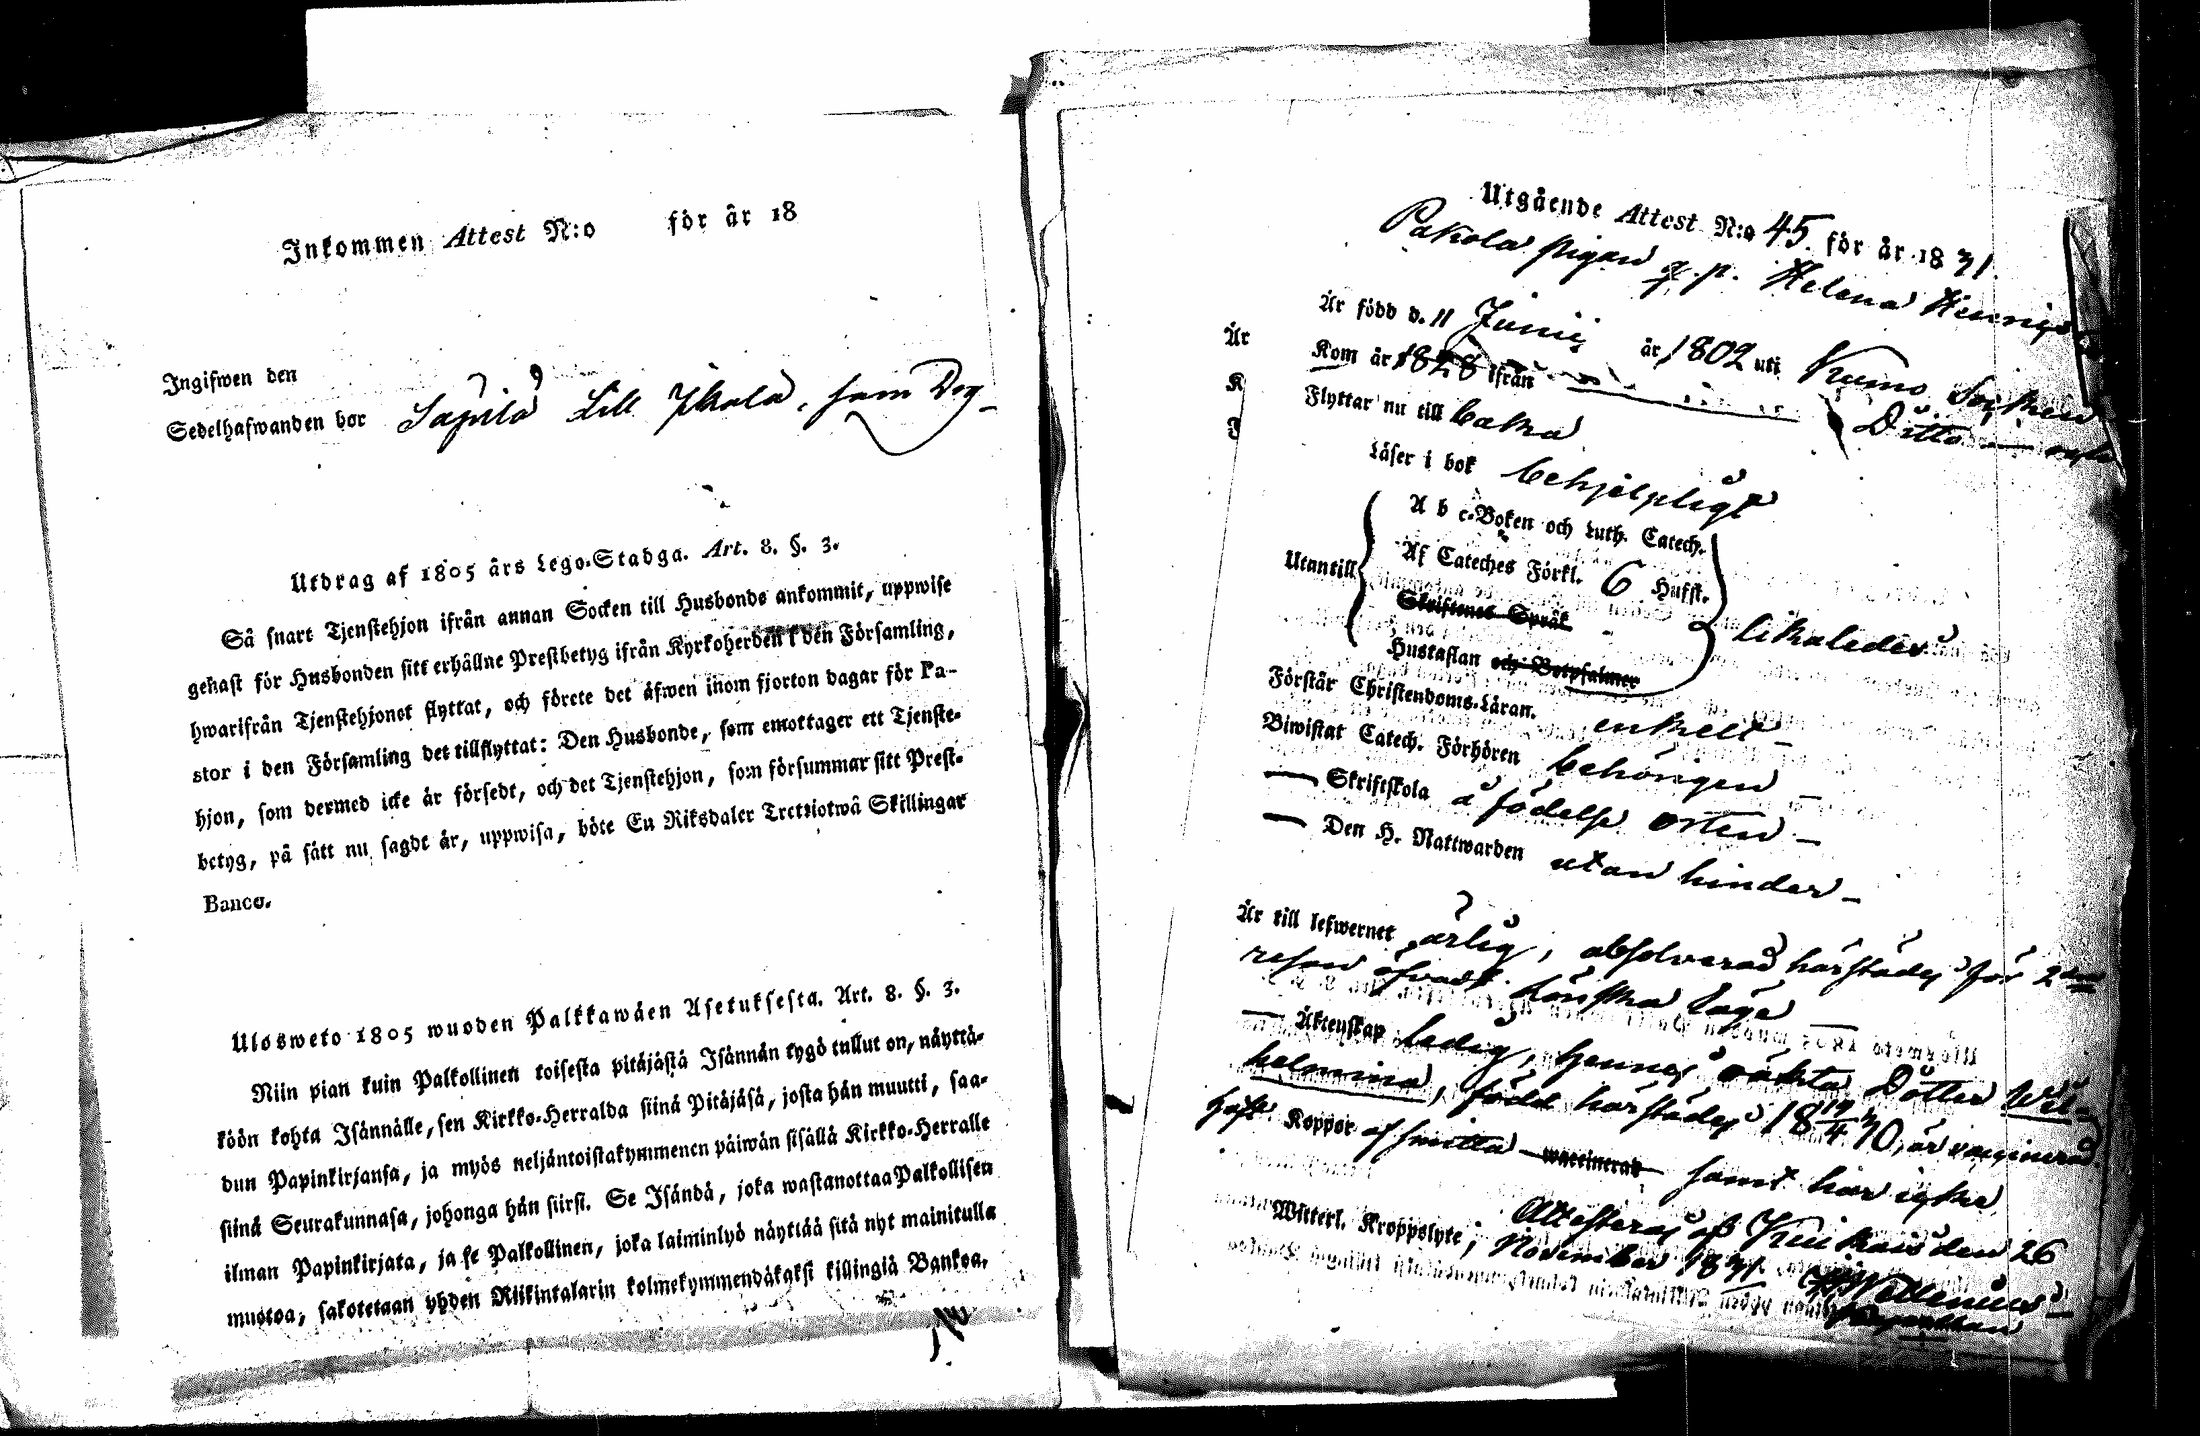 Inkommen Attest N:o för år 18
Ingifwen den
Sedelhafwanden bor Säpilä till Ikala, som Dog-
Utdrag af 1805 års Lego-Stadga. Art. 8. §. 3.
Så snart Tjenstehjon ifrån annan Socken till Husbonde ankommit, uppwise
genast för Husbonden sitt erhållne Prestbetyg ifrån Kyrkoherden i den Församling,
hwarifrån Tjenstehjonet flyttat, och förete det äfwen inom fjorton dagar för Pa-
stor i den Församling det tillflyttat: Den Husbonde, som emottager ett Tjenste-
hjon, som dermed icke är försedt, och det Tjenstehjon, som försummar sitt Prest-
betyg, på sätt nu sagdt är, uppwisa, böte En Riksdaler Trettiotwå Skillingar
Banco.
Ulosweto 1805 wuoden Palkkawäen Asetuksesta. Art. 8. §. 3.
Niin pian kuin Palkollinen toisesta pitäjästä Isännän tygö tullut on, näyttä-
köön kohta Isännälle, sen Kirkko-Herralda siinä Pitäjäsä, josta hän muutti, saa-
dun Papinkirjansa, ja myös neljäntoistakymmenen päiwän sisällä Kirkko-Herralle
siinä Seurakunnasa, johonga hän siirsi. Se Isändä, joka wastanottaa Palkollisen
ilman Papinkirjata, ja se Palkollinen, joka laiminlyö näyttää sitä nyt mainitulla
muotoa, sakotetaan yhden Riikintalarin kolmekymmendäkaksi killingiä Bankoa.
Utgående Attest N:o 45 för år 1831.
Pakola pigan q. p. Helena
Är född d. 11 Junii år 1802 uti Kumo Socken
Kom år 1828 ifrån Ditto
Flyttar nu till baka
Läser i bok behjelpligt
A b c-Boken och Luth. Catech.
Utantill Af Cateches Förkl. 6 Hufst.
Skriftenes Språk likaledes
Hustaflan och Botpsalmer
Förstår Christendoms-Läran. enkelt
Biwistat Catech. Förhören behörigen
Skriftskola å födelse orten
Den H. Nattwarden utan hinder
Är till lefwernet ärlig, absolverad härstädes för 2dra
resan öfvadt lönska läge
Äktenskap ledig, hennes oäkta Dotter Wil-
helmina, född härstädes 18 17/4 30, är vaccinerad
haft Koppor af smitta waccinerad samt har icke
Witterl. Kroppslyte; Attesteras af Kuikais den 26
November 1831.